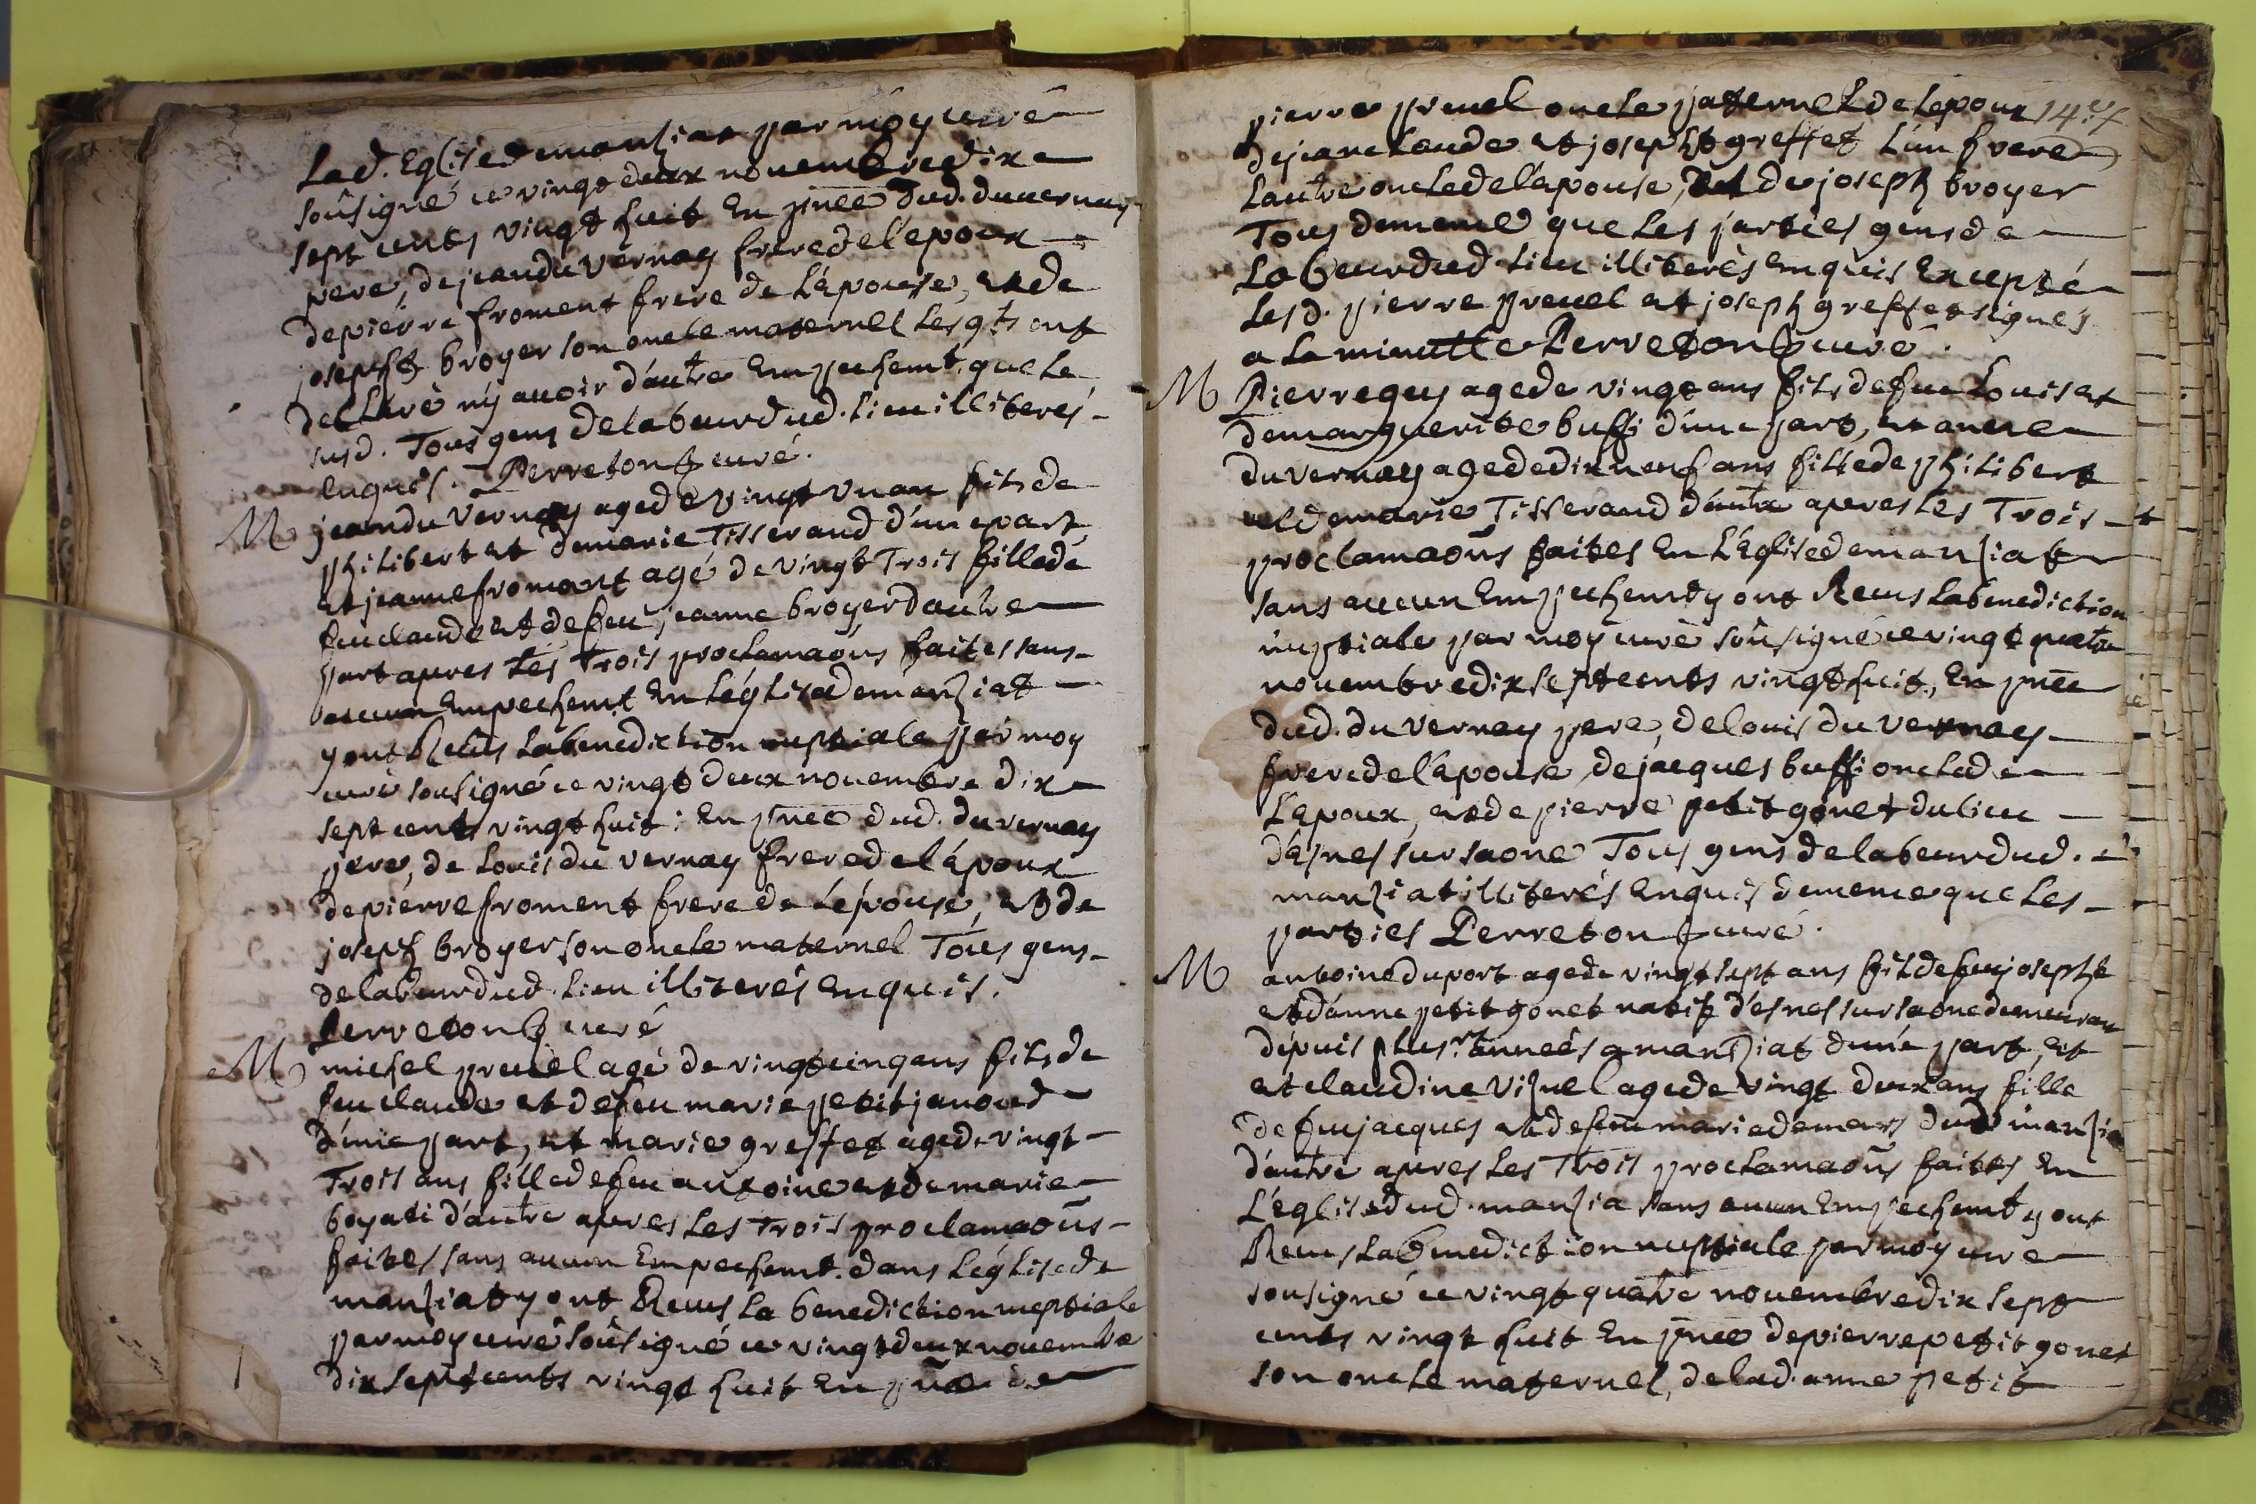 Lad. Eglise demanziat par moy curé
soûsigné ce vingt deux novembre dix
sept cents vingt huit En pnce dud. duvernay
pere, de jean du vernay frere de l'epoux
de pierre froment frere de L'epouse, et de
joseph broyer son oncle maternel Lesqts ont
declaré ny avoir d'autre Empechemt. que Le
susd. Tous gens de labeur dud. Lieu illiterés
enquis. Perreton curé.
M jean du Vernay agé de vingt un an fils de
philibert et de marie Tisserand d'une part,
et jeanne fromont agé de vingt Trois fille de
feu claude et de feu jeanne broyer d'autre
part apres Les Trois proclamaoñs faites sans
aucun Empechemt En L'églisedemanziat
y ont Receus La benediction nuptiale par moy
curé soûsigné ce vingt deux novembre dix
sept cents vingt huit: En pnce dud. du vernay
pere, de Louis du vernay frere de l'époux
de pierre froment frere de L'épouse, et de
joseph broyer son oncle maternel Tous gens
de labeur dud. Lieu illiterés enquis.
Perreton curé
M michel pruel agé de vingt cinq ans fils de
feu claude et de feu marie petitjanoud
d'une part, et marie greffet agé de vingt
Trois ans fille de feu antoine et de marie
boyati d'autre apres Les Trois proclamaoñs
faites sans aucun Empechemt. dans L'églisede
manziat y ont Receus La benediction nuptiale
par moy curé soûsigné ce vingt deux novembre
dix sept cents vingt huit En pñce de
pierre pruel oncle paternel de L'epoux 147
de jean claude et joseph greffet L'un frere
L'autre oncle de l'épouse, et de joseph broyer
Tous de meme que Les parties gens de
Labeur dud. Lieu illiterés enquis Excepté
Lesd. pierre pruel et joseph greffet signés
a La minutte Perreton curé.
M Pierre guy agé de vingt ans fils de feu Louis et
de marguerite buffi d'une part, et anne
du vernay agé de dix neuf ans fille de philibert
et de marie Tisserand d'autre apres Les Trois
proclamaoñs faites En L'Eglise de manziat
sans aucun Empechemt y ont Receus La benediction
nuptiale par moy curé soûsigné ce vingt quatre
novembre dix sept cents vingt huit, En pnce
dud. du vernay pere, de Louis du vernay
frere de l'épouse, de jacques buffi oncle de
L'epoux, et de pierre petit gonet du lieu
d'asnes sur saone Tous gens de labeur dud.
manziat illiterés enquis de meme que Les
parties Perreton curé.
M antoine duport agé de vingt sept ans fils de feu joseph
et d'anne petit gonet natif d'esnes sur saone demeurant
depuis plusrs. années a manziat d'une part, et
et claudine Vizuel agé de vingt deux ans fille
de feu jacques et de feu marie demars dud. manzia
d'autre apres Les Trois proclamaoñs faites En
L'eglise dud. manzia sans aucun Empechemt y ont
Receus La benediction nuptiale par moy curé
soûsigné ce vingt quatre novembre dix sept
cents vingt huit En pnce de pierre petit gonet
son oncle maternel, de lad. anne petit